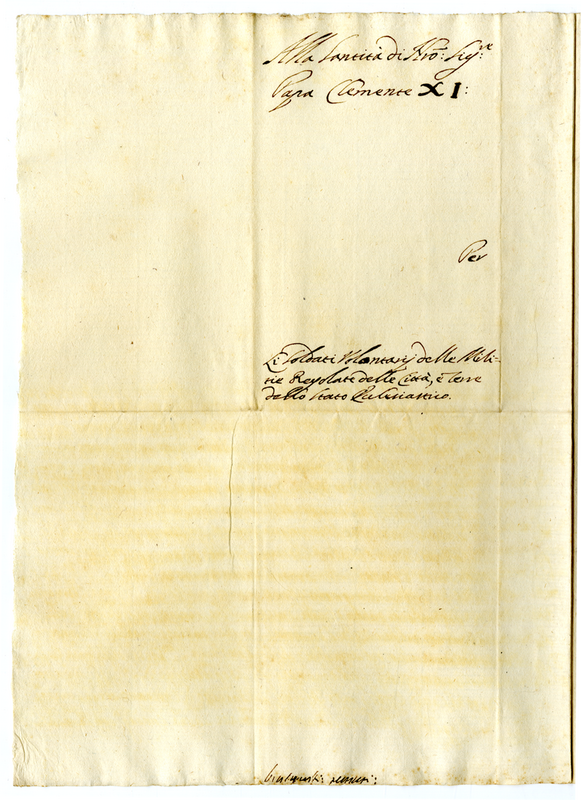 Alla Santità di Nro: Sigre
Papa Clemente XI:
Per
Li Soldati Volontarij delle Mili-
tie Regolate delle Città, è Terre
dello Stato Eclesiastico.